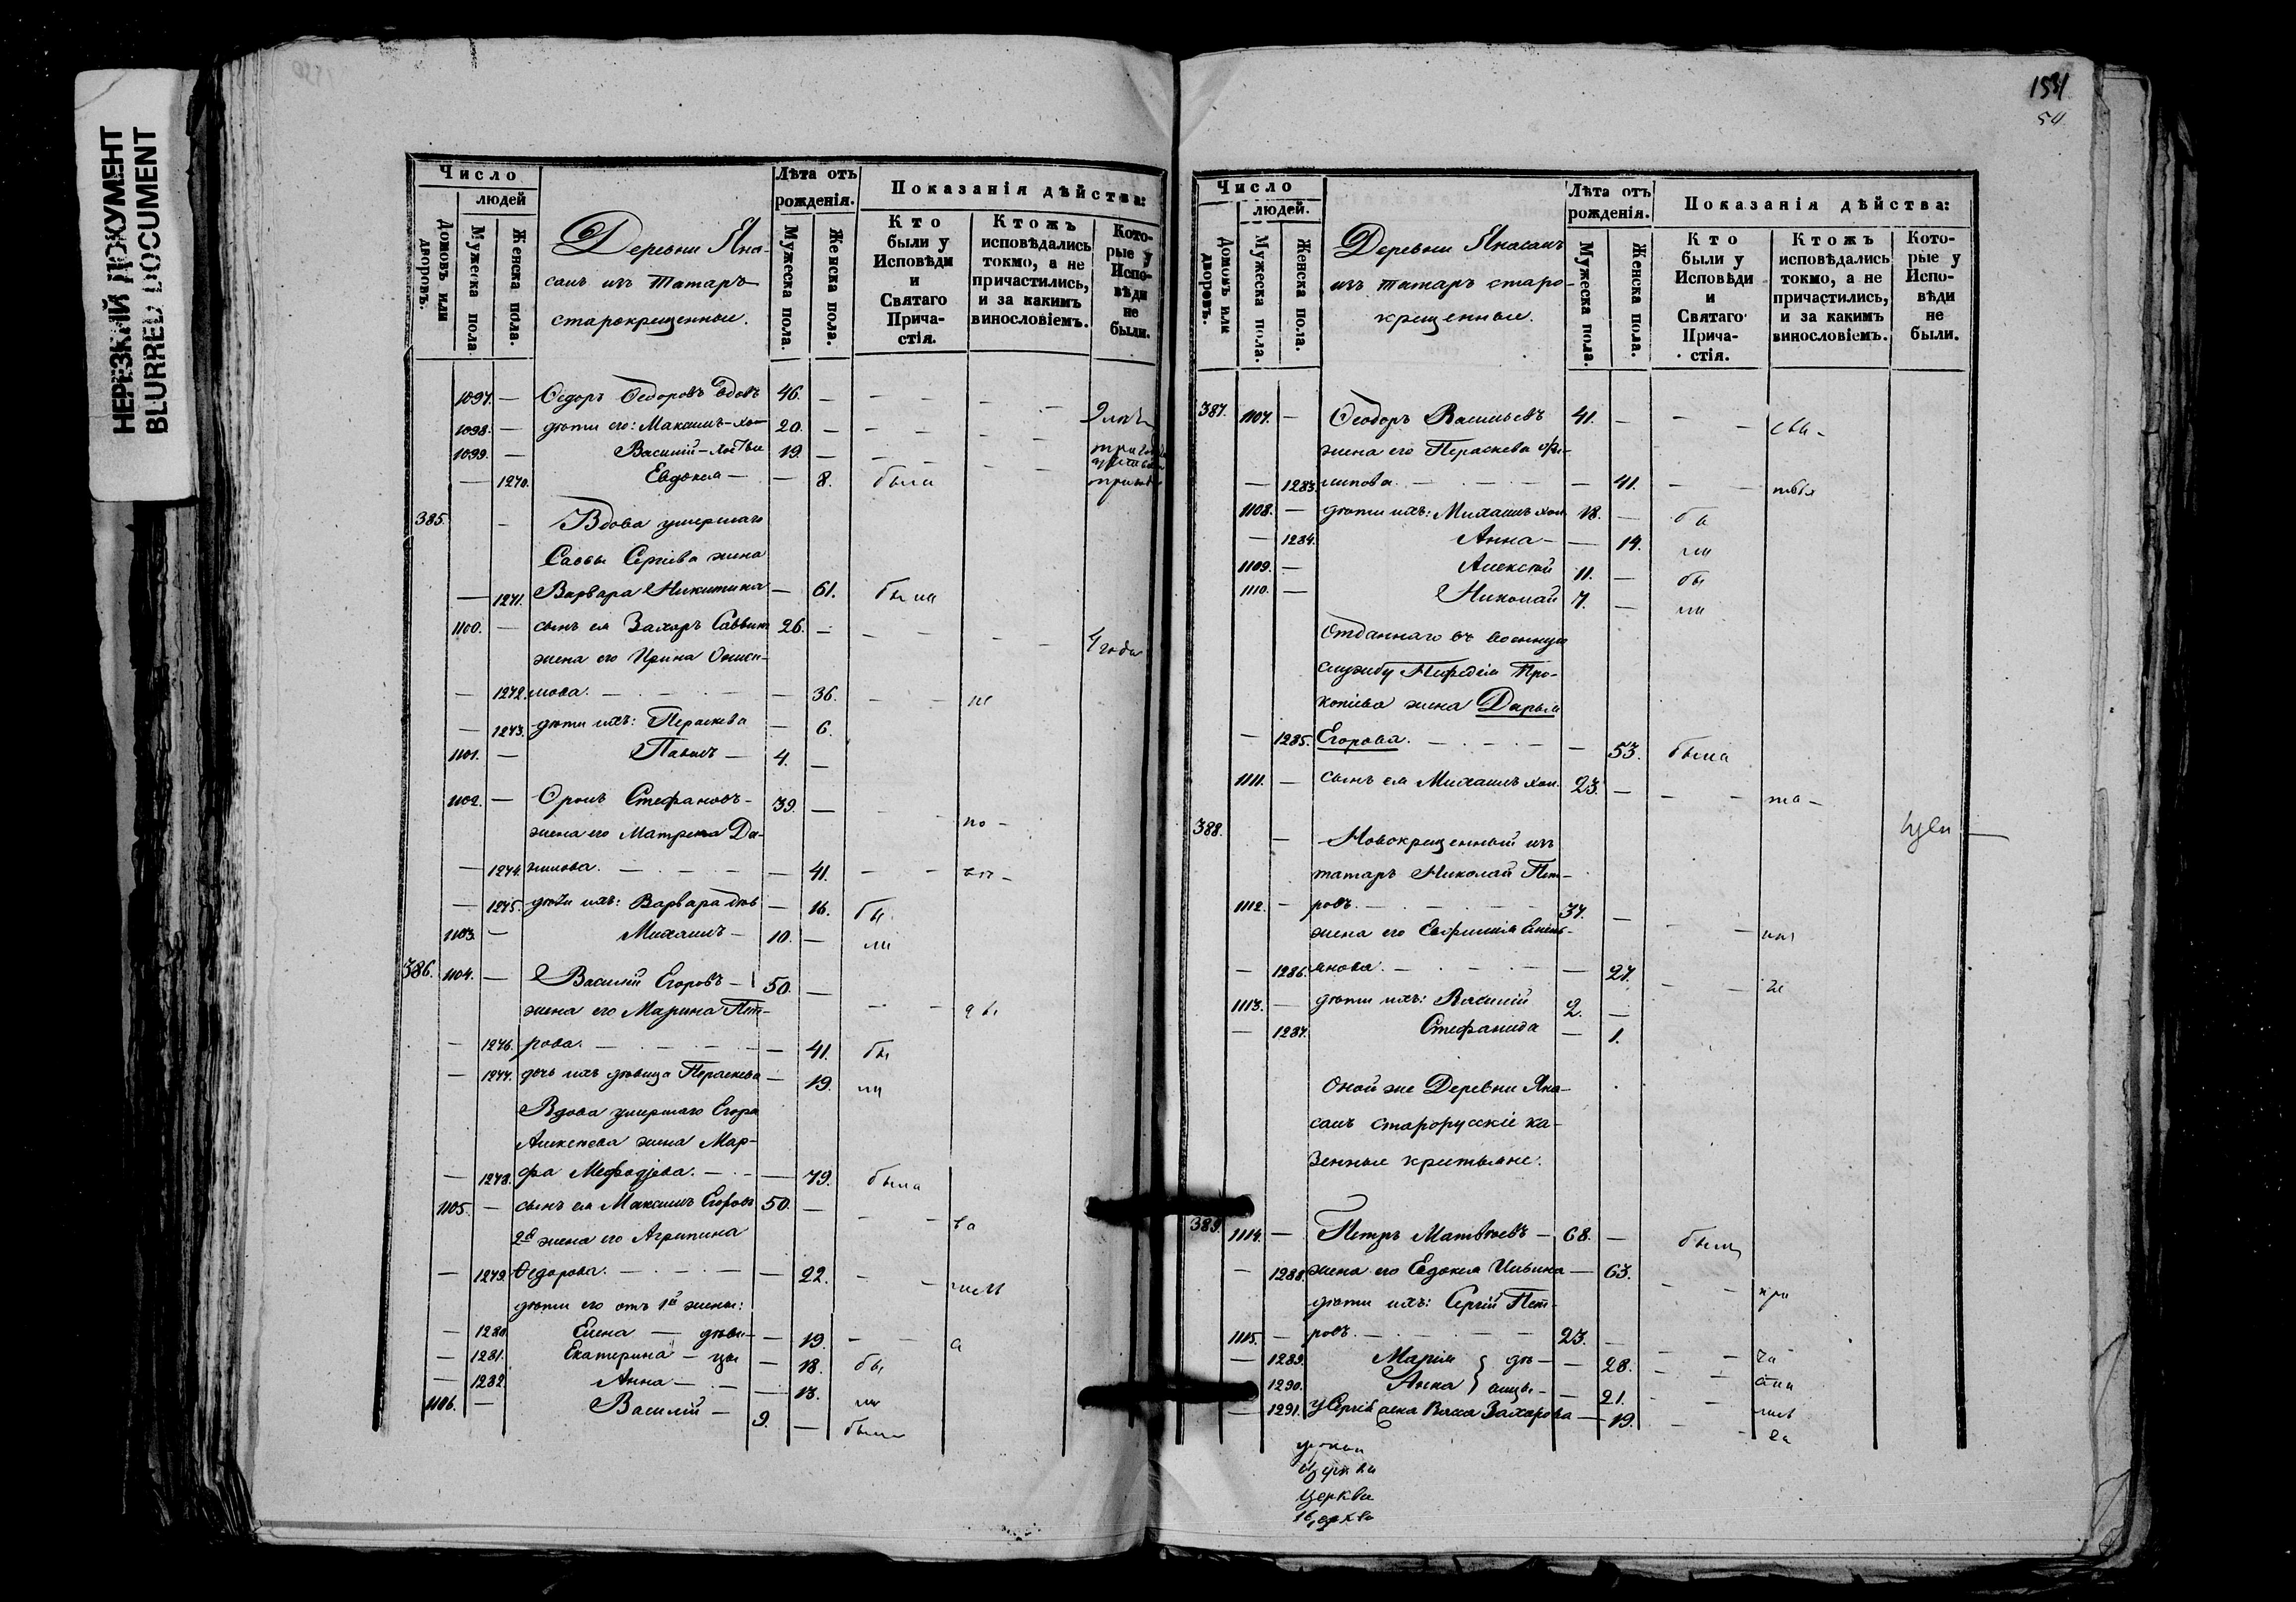 НЕРЕЗКИЙ ДОКУМЕНТ
BLURRED DOCUMENT
Число
людей
Домовъ или дворовъ.
Мужеска пола.
Женска пола.
Деревни Яна-
салъ изъ Татаръ
старокрещенные.
Лѣта отъ
рожденія.
Мужеска пола.
Женска пола.
Показанія дѣйства:
Кто
были у
Исповѣди
и
Святаго
Прича-
стія.
Ктожъ
исповѣдались
токмо, а не
причастились,
и за какимъ
винословіемъ.
Кото-
рые у
Испо-
вѣди
не
были.
1097. — Ѳедоръ Ѳедоровъ вдовъ 46. —
1098. — дѣти его: Максимъ — хол 20. —
1099. — Василій — лостые 19. —
— 1270. Евдокея — — 8. была
385. — Вдова умершаго
Саввы Сергіева жена
— 1271. Варвара Никитина — 61. была
1100. — сынъ ея Захаръ Саввин 26. — 4 года
жена его Ирина Ониси-
— 1272. мова. — — 36. не
— 1273. дѣти ихъ: Пераскева — 6.
1101. — Павелъ — 4. —
1102. — Стефановъ — 39. — по —
жена его Матрена Да-
— 1274. нилова. — — 41.
— 1275. дѣти ихъ: Варвара дѣв — 16. бы
1103. — Михаилъ — 10. — ли
386. 1104. — Василій Егоровъ — 50. —
жена его Марина Пет-
— 1276. рова. — — 41. бы
— 1277. дочь ихъ дѣвица Пераскева — 19. ли
Вдова умершаго Егора
Алексѣева жена Мар-
— 1278. фа Мефодіева. — — 79. была
1105. — сынъ ея Максимъ Егоровъ 50. —
2я жена его Агрипина
— 1279. Ѳедорова. — — 22.
дѣти его отъ 1й жены:
— 1280. Елена — дѣви- — 19.
— 1281. Екатерина — цы — 18. бы
— 1282. Анна — — 13. ли
1106. — Василій — 9. — былъ
1531
54
Число
людей.
Домовъ или дворовъ.
Мужеска пола.
Женска пола.
Деревни Янасалъ
изъ татаръ старо-
крещенные.
Лѣта отъ
рожденія.
Мужеска пола.
Женска пола.
Показанія дѣйства:
Кто
были у
Исповѣди
и
Святаго
Прича-
стія.
Ктожъ
исповѣдались
токмо, а не
причастились,
и за какимъ
винословіемъ.
Кото-
рые у
Испо-
вѣди
не
были.
387. 1107. — Ѳеодоръ Васильевъ 41. —
жена его Пераскева Фи-
— 1283. липова. — — 41.
1108. — дѣти ихъ: Михаилъ хол. 18. — бы
— 1284. Анна — — 14. ли
1109. — Алексѣй 11. — бы
1110. — Николай 7. — ли
Отданнаго въ военную
службу Нефедія Про-
копіева жена Дарья
— 1285. Егорова. — — 53. была
1111. — сынъ ея Михаилъ хол. 23. —
388. — Новокрещенный изъ
татаръ Николай Пет-
1112. — ровъ. — 37. —
жена его Евфимія
— 1286. янова. — — 27.
1113. — дѣти ихъ: Василій 2. —
— 1287. Стефанида — 1.
Оной же Деревни Яна-
салъ старорусскіе ка-
зенные крестьяне.
389. 1114. — Петръ Матвѣевъ — 68. — былъ
— 1288. жена его Евдокея Ильина — 63.
дѣти ихъ: Сергій Пет-
1115. — ровъ. — 23. —
— 1289. Марія } дѣ- — 28.
1290. Анна } вицы — — 21.
— 1291. у Сергія жена Васса Захарова — 19.
Церкви
Церкви